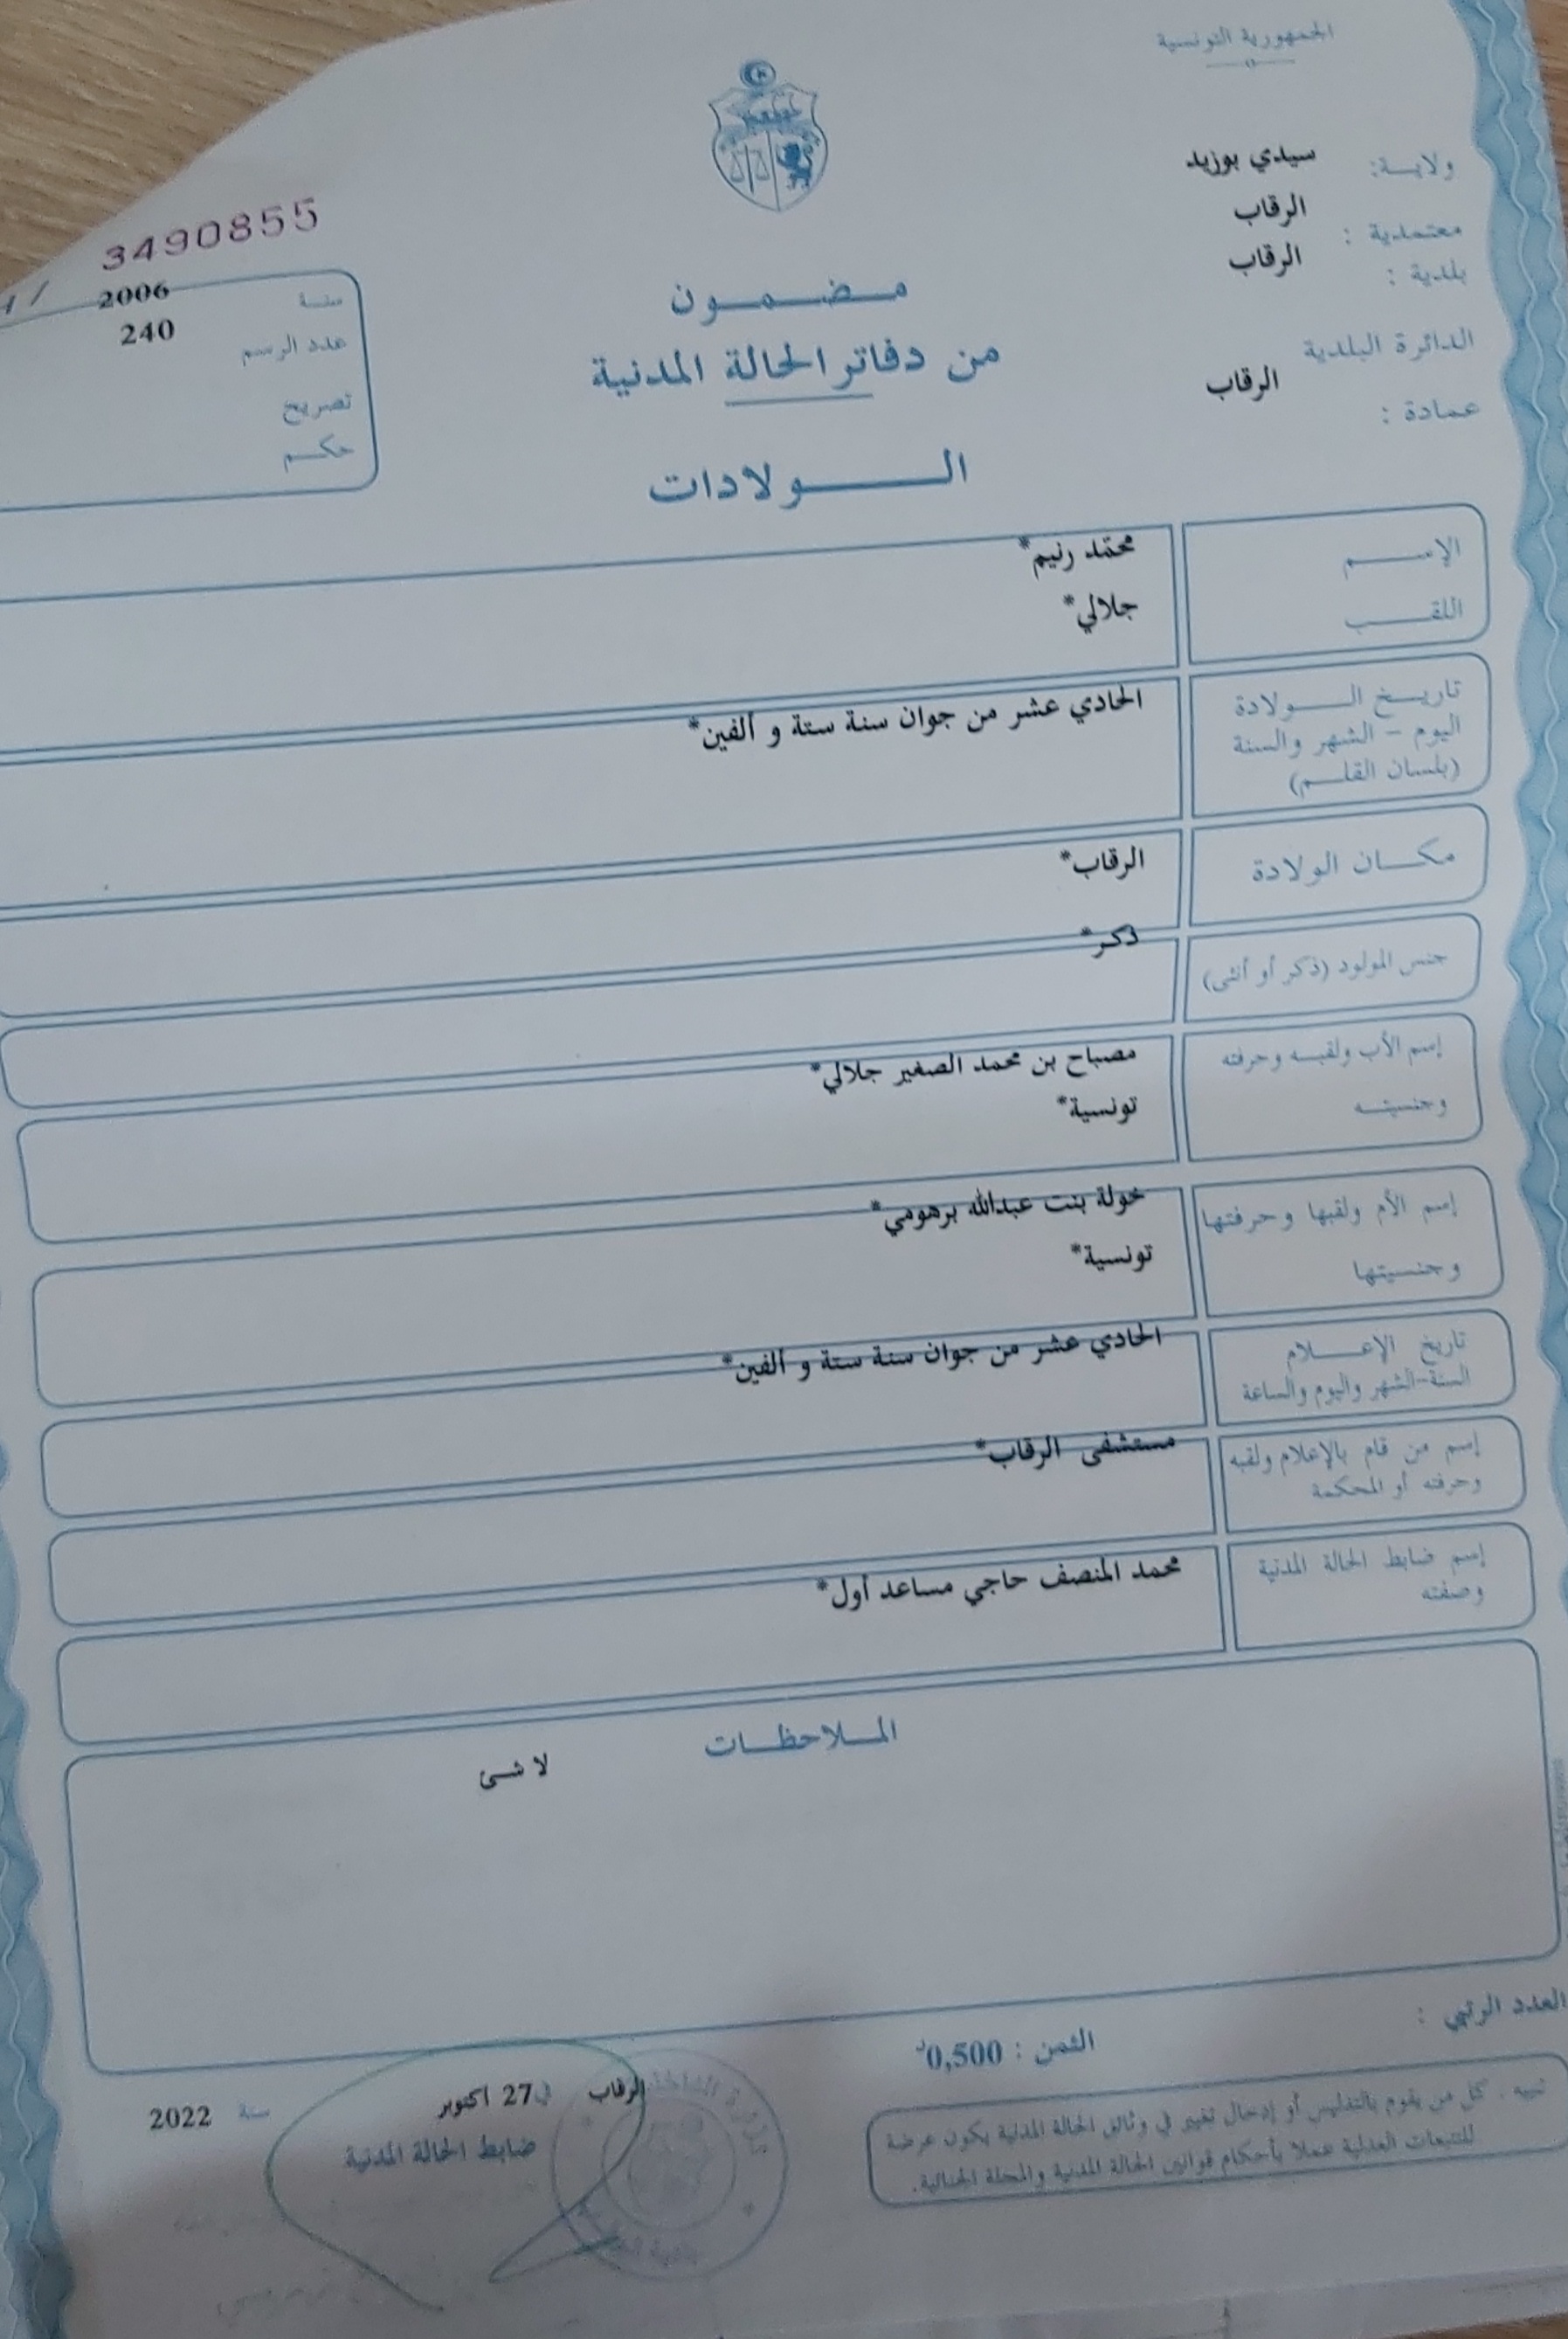 الجمهورية التونسية
ولايـة: سيدي بوزيد
معتمدية : الرقاب
بلدية : الرقاب
الدائرة البلدية
عمادة : الرقاب
3490855
سنة 2006
عدد الرسم 240
تصريح
حكم
مضمون
من دفاتر الحالة المدنية
الولادات
الإسم محمّد رنيم*
اللقب جلالي*
تاريخ الولادة
اليوم - الشهر والسنة
(بلسان القلم)
الحادي عشر من جوان سنة ستة و ألفين*
مكان الولادة الرقاب*
جنس المولود (ذكر أو أنثى) ذكر*
إسم الأب ولقبه وحرفته مصباح بن محمد الصغير جلالي*
وجنسيته تونسية*
إسم الأم ولقبها وحرفتها خولة بنت عبدالله برهومي*
وجنسيتها تونسية*
تاريخ الإعلام
السنة-الشهر واليوم والساعة
الحادي عشر من جوان سنة ستة و ألفين*
إسم من قام بالإعلام ولقبه
وحرفته أو المحكمة
مستشفى الرقاب*
إسم ضابط الحالة المدنية
وصفته
محمد المنصف حاجي مساعد أول*
الملاحظات
لا شئ
العدد الرتبي :
الثمن : 0,500د
تنبيه . كل من يقوم بالتدليس أو إدخال تغيير في وثائق الحالة المدنية يكون عرضة
للتتبعات العدلية عملا بأحكام قوانين الحالة المدنية والمجلة الجنائية.
الرقاب في 27 اكتوبر سنة 2022
ضابط الحالة المدنية